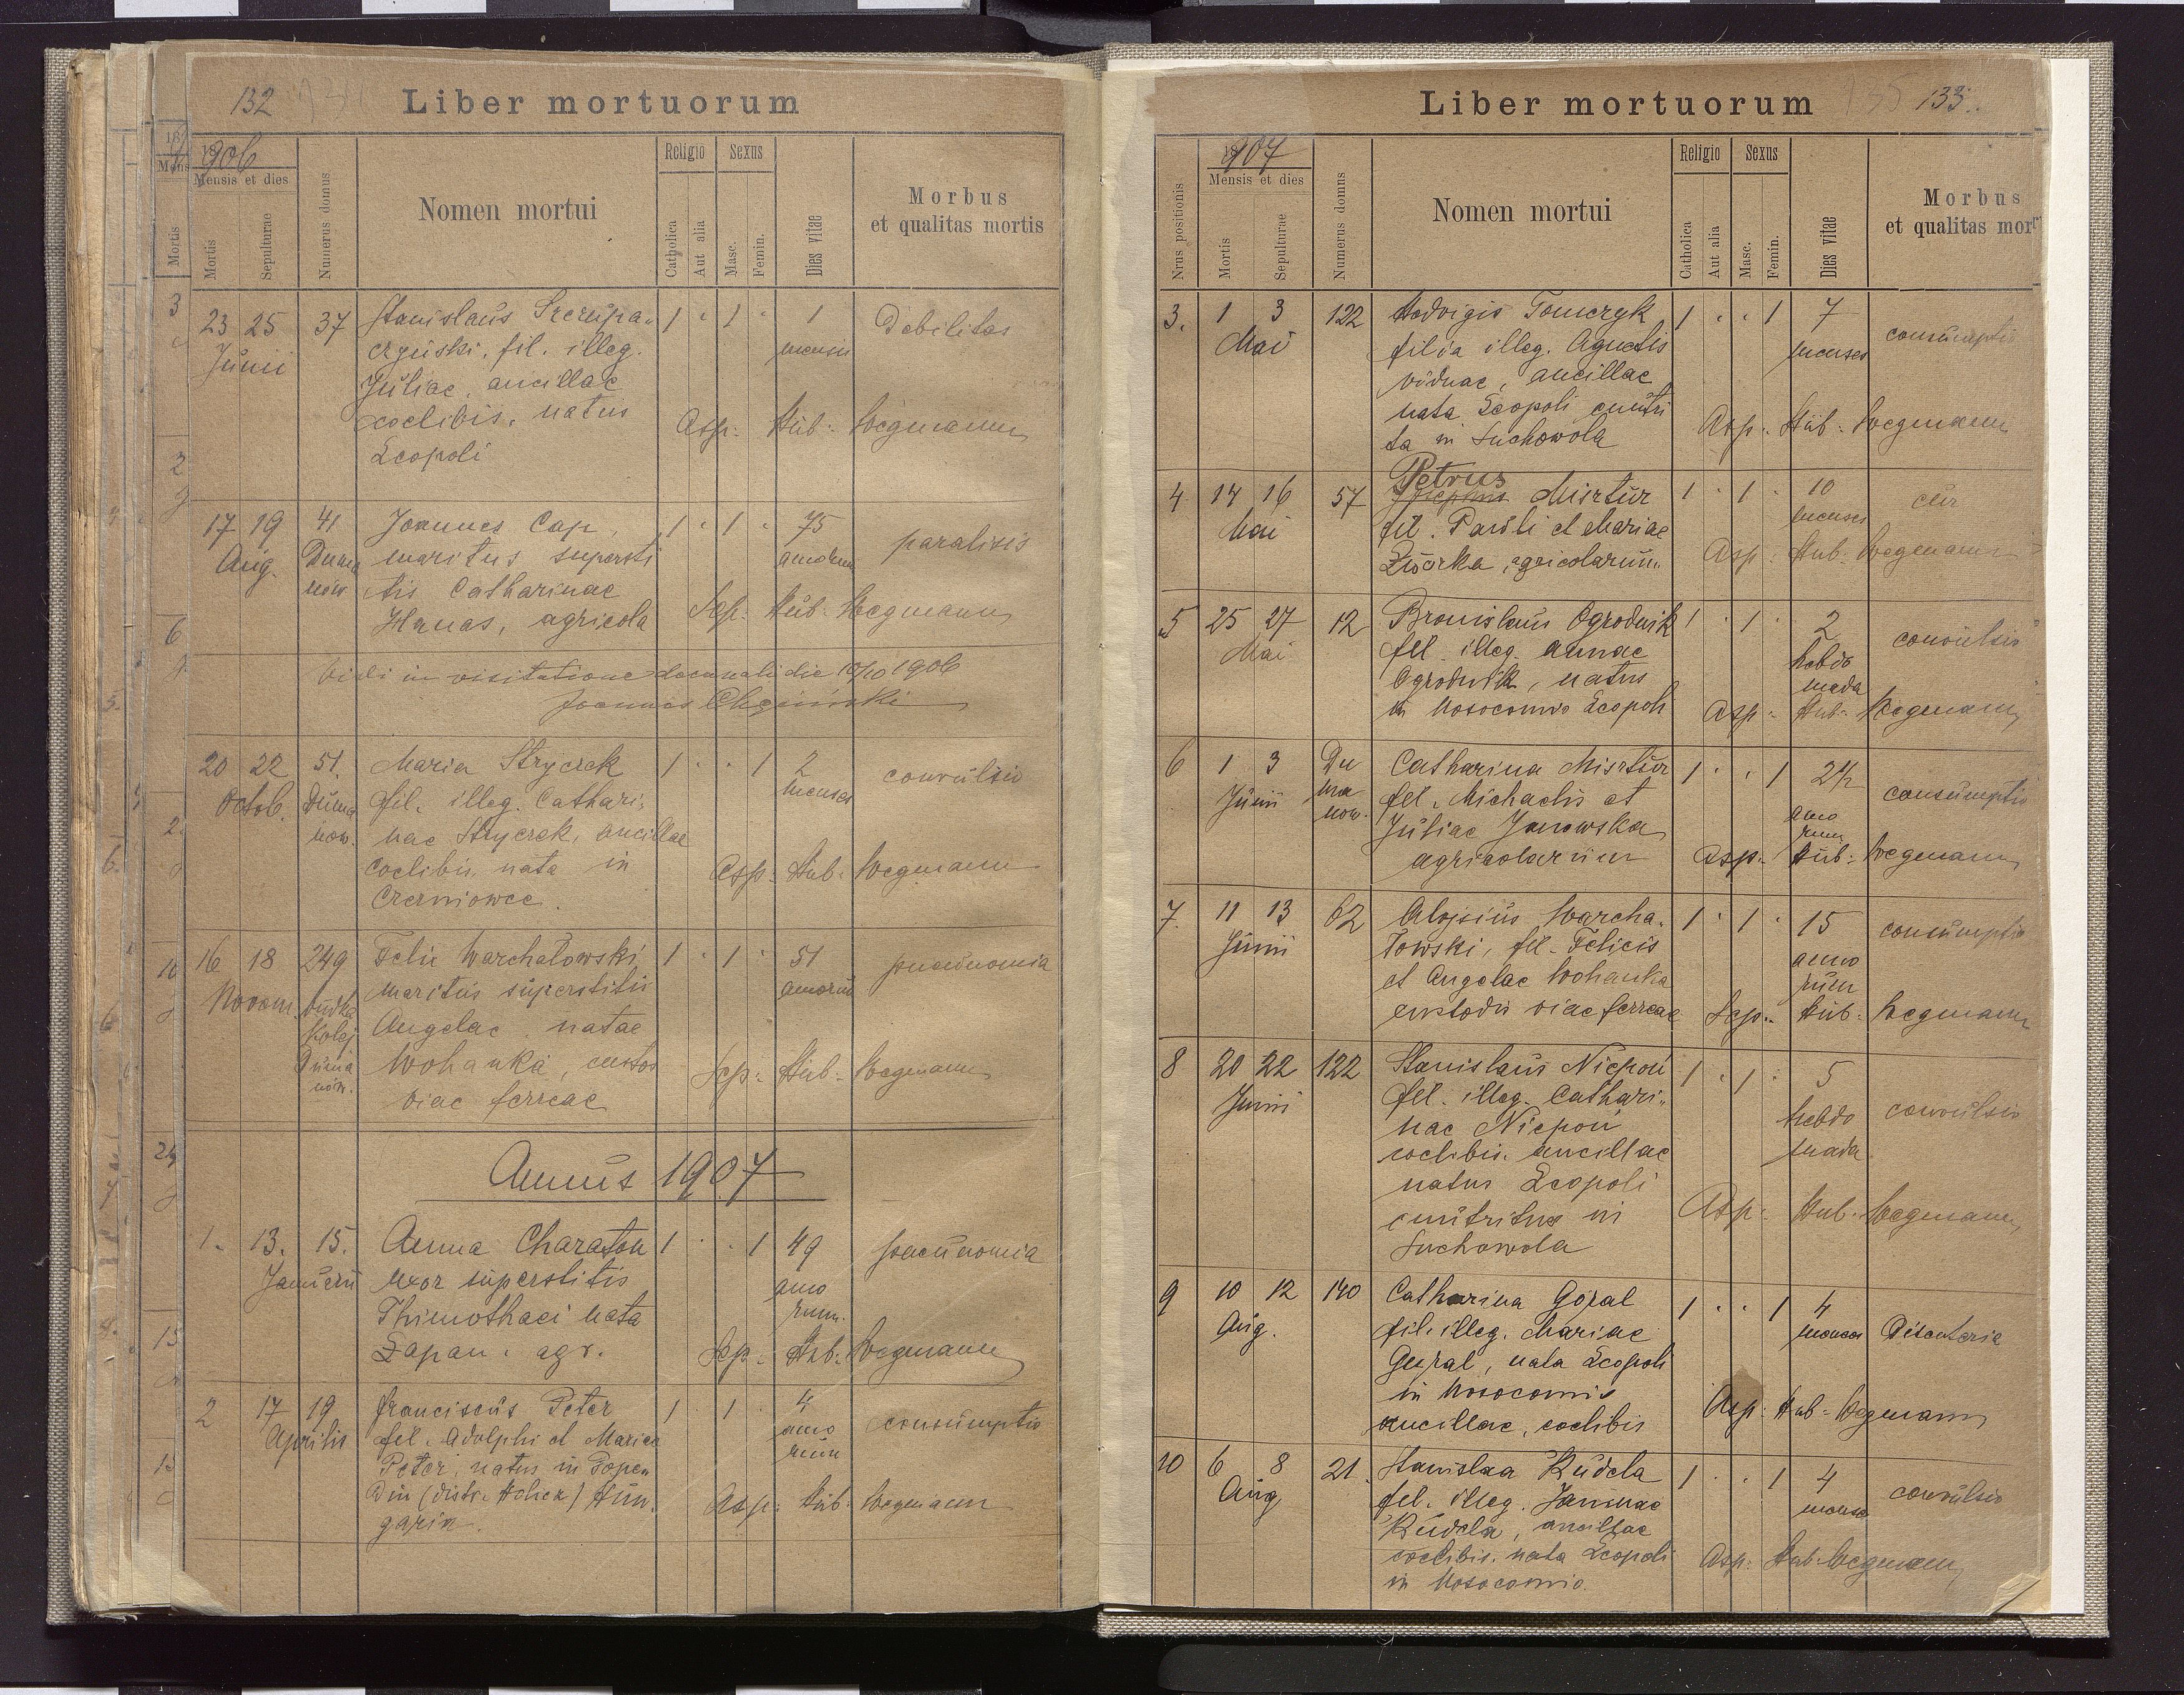 132
Liber mortuorum
1906
Mensis et dies
Mortis
Sepulturae
Numerus domus
Nomen mortui
Religio
Catholica
Aut alia
Sexus
Masc.
Femin.
Dies vitae
Morbus
et qualitas mortis
23 25 37 Stanislaus 1 · 1 · 1 Debilitas
Junii fil. illeg. mensis
Juliae, ancillae
coelibis, natus Asp: Hub: Wegmann
Leopoli
17 19 41 Joannes Cap, 1 · 1 · 75 paralisis
Aug. Duma maritus supersti annorum
now tis Catharinae
Hanas, agricola Sep: Hub: Wegmann
Vidi in visitatione decanali die 10/10 1906
Joannes
20 22 51. Maria Strycek 1 · · 1 2 convulsio
Octob. Duma fil. illeg. Cathari- menses
now. nae Strycek, ancillae
coelibis, nata in Asp: Hub: Wegmann
Czerniowce.
16 18 249 Felix Warchałowski, 1 · 1 · 51 pneunomia
Novem. budka maritus superstitis annorum
Kolej Angelae, natae
Duma Wohanka, custos Sep: Hub: Wegmann
now. viae ferreae
Annus 1907
1. 13. 15. Anna Charaton 1 · · 1 49 pneunomia
Januarii uxor superstitis anno
Thimothaei nata rum.
Łapan. agr. Sep: Hub: Wegmann
2 17 19 Franciscus Peter 1 · 1 · 4 consumptio
Aprilis fil. Adolphi et Mariae anno
Peter, natus in rum
(distr. Holicz) Hun Asp: Hub: Wegmann
garia.
Liber mortuorum
133.
Nrus positionis
1907
Mensis et dies
Mortis
Sepulturae
Numerus domus
Nomen mortui
Religio
Catholica
Aut alia
Sexus
Masc.
Femin.
Dies vitae
Morbus
et qualitas mort
3. 1 3 122 Hedvigis Tomczyk 1 · · 1 7 consumptio
Mai filia illeg. Agnetis menses
viduae, ancillae
nata Leopoli enutri Asp: Hub: Wegmann
ta in Suchowola
Petrus
4 14 16 57 Josephus Misztur 1 · 1 · 10
Mai fil. Pauli et Mariae menses
Zwörka, agricolarum. Asp: Hub: Wegmann
5 25 27 12 Bronislaus Ogrodnik 1 · 1 · 2 convulsio
Mai fil. illeg. Annae hebdo
Ogrodnik, natus mada
in Nosocomio Leopoli Asp: Hub: Wegmann
6 1 3 Du Catharina Misztur 1 · · 1 2½ consumptio
Junii ma fil. Michaelis et anno
now. Juliae Janowska rum
agricolarum Asp: Hub: Wegmann
7. 11 13 62 Alojsius Warcha- 1 · 1 · 15 consumptio
Junii łowski, fil. Felicis anno
et Angelae Wohanka rum
custodis viae ferreae Sep: Hub: Wegmann
8 20 22 122 Stanislaus Niepoń 1 · 1 · 5 convulsio
Junii fil. illeg. Cathari- hebdo
nae Niepoń mada
coelibis. ancillae
natus Leopoli Asp: Hub: Wegmann
enutritus in
Suchowola
9 10 12 140 Catharina Goral 1 · · 1 4 Disenteria
Aug. fil. illeg. Mariae menses
Goral, nata Leopoli
in Nosocomio Asp: Hub: Wegmann
ancillae, coelibis
10 6 8 21. Stanislaa Kudela 1 · · 1 4 convulsio
Aug fil. illeg. Janinae menses
Kudela, ancillae
coelibis. nata Leopoli Asp: Hub: Wegmann
in Nosocomio.